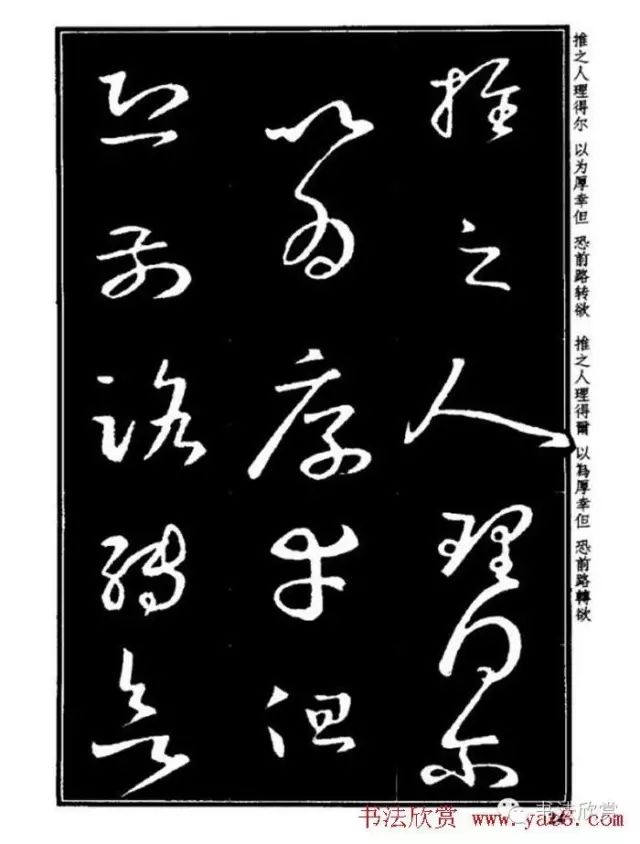 推之人理得尔
以为厚幸但
恐前路转欲
推之人理得尔 以为厚幸但 恐前路转欲 推之人理得爾 以為厚幸但 恐前路轉欲
书法欣赏 www.yac8.com
书法欣赏
24